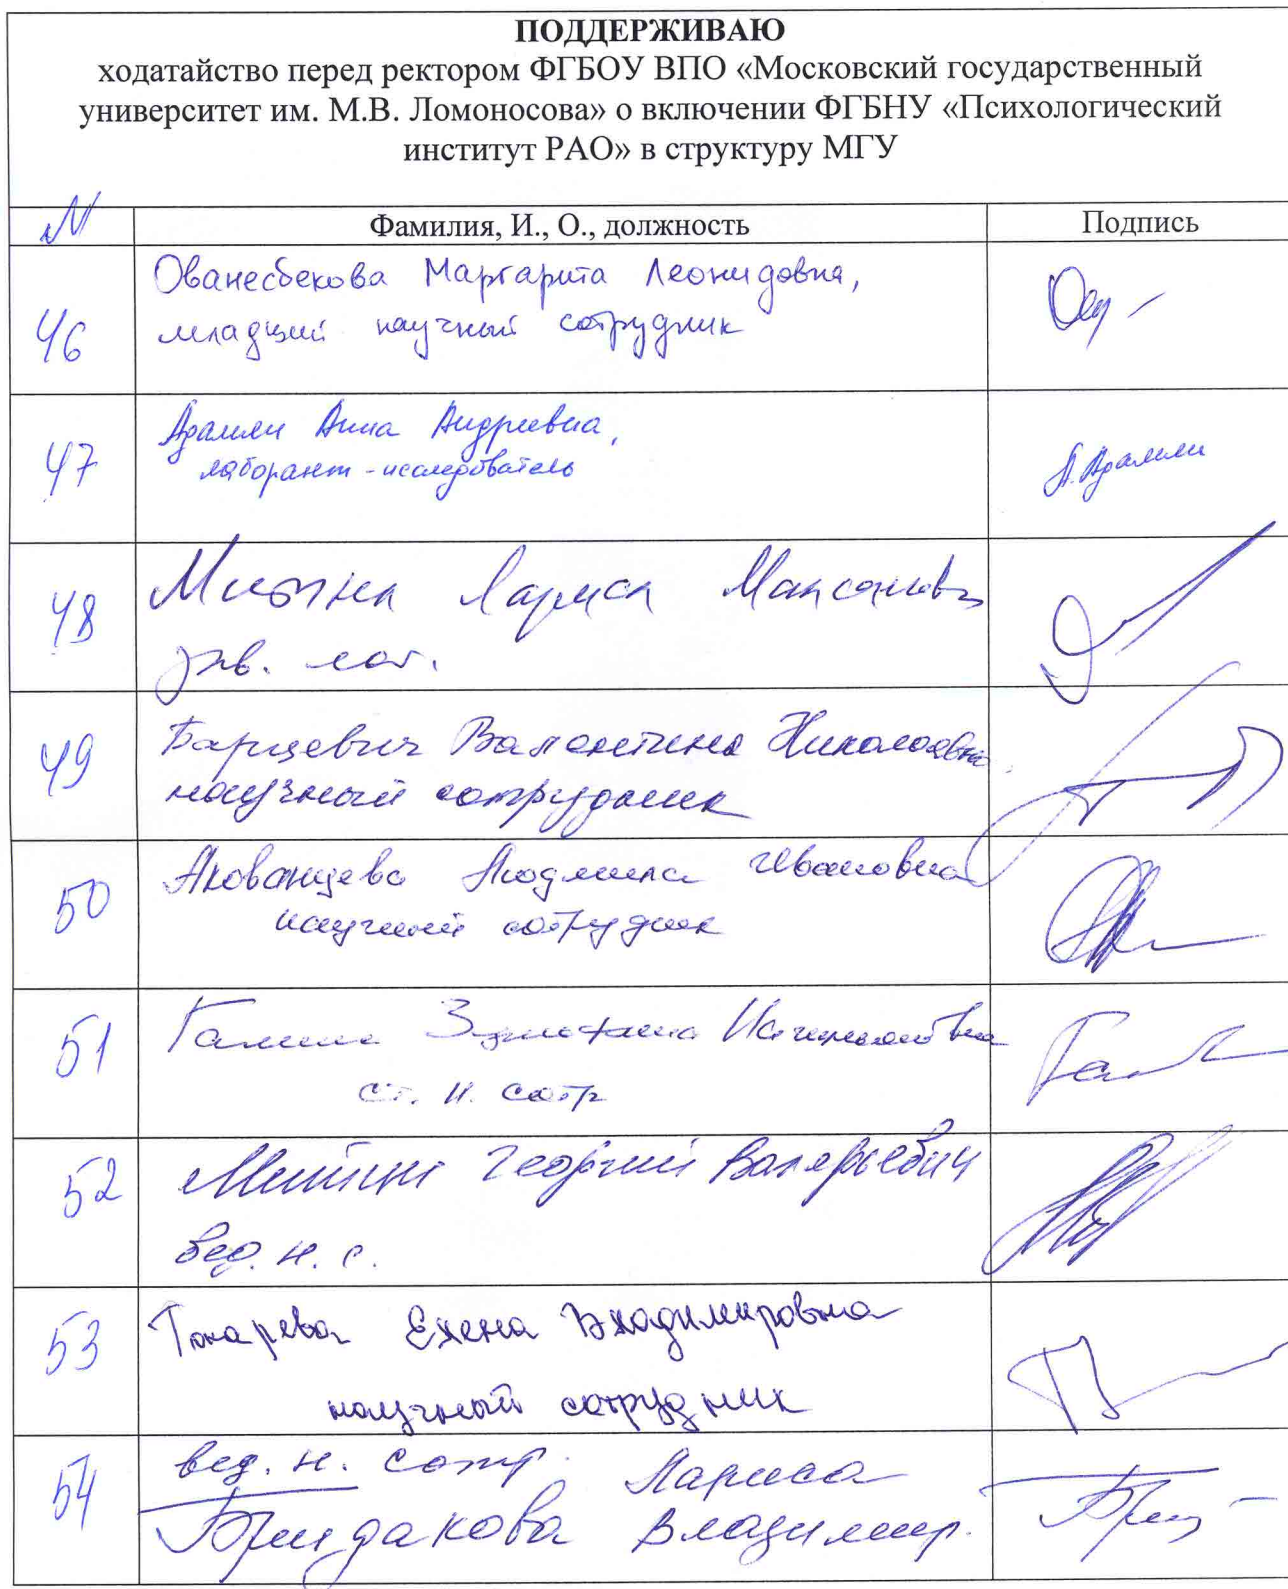 ПОДДЕРЖИВАЮ
ходатайство перед ректором ФГБОУ ВПО «Московский государственный
университет им. М.В. Ломоносова» о включении ФГБНУ «Психологический
институт РАО» в структуру МГУ
N Фамилия, И., О., должность Подпись
46 Ованесбекова Маргарита Леонидовна,
младший научный сотрудник
47 Адамян Анна Андреевна,
лаборант-исследователь
48 Митина Лариса Максимовна
зав. лаб.
49 Барцевич Валентина Николаевна
научный сотрудник
50 Акованцева Людмила Ивановна
научный сотрудник
51 Галина
ст. н. сотр
52 Митин Георгий Валерьевич
вед. н. с.
53 Токарева Елена Владимировна
научный сотрудник
54 вед. н. сотр. Лариса
Бриндакова Владимир.